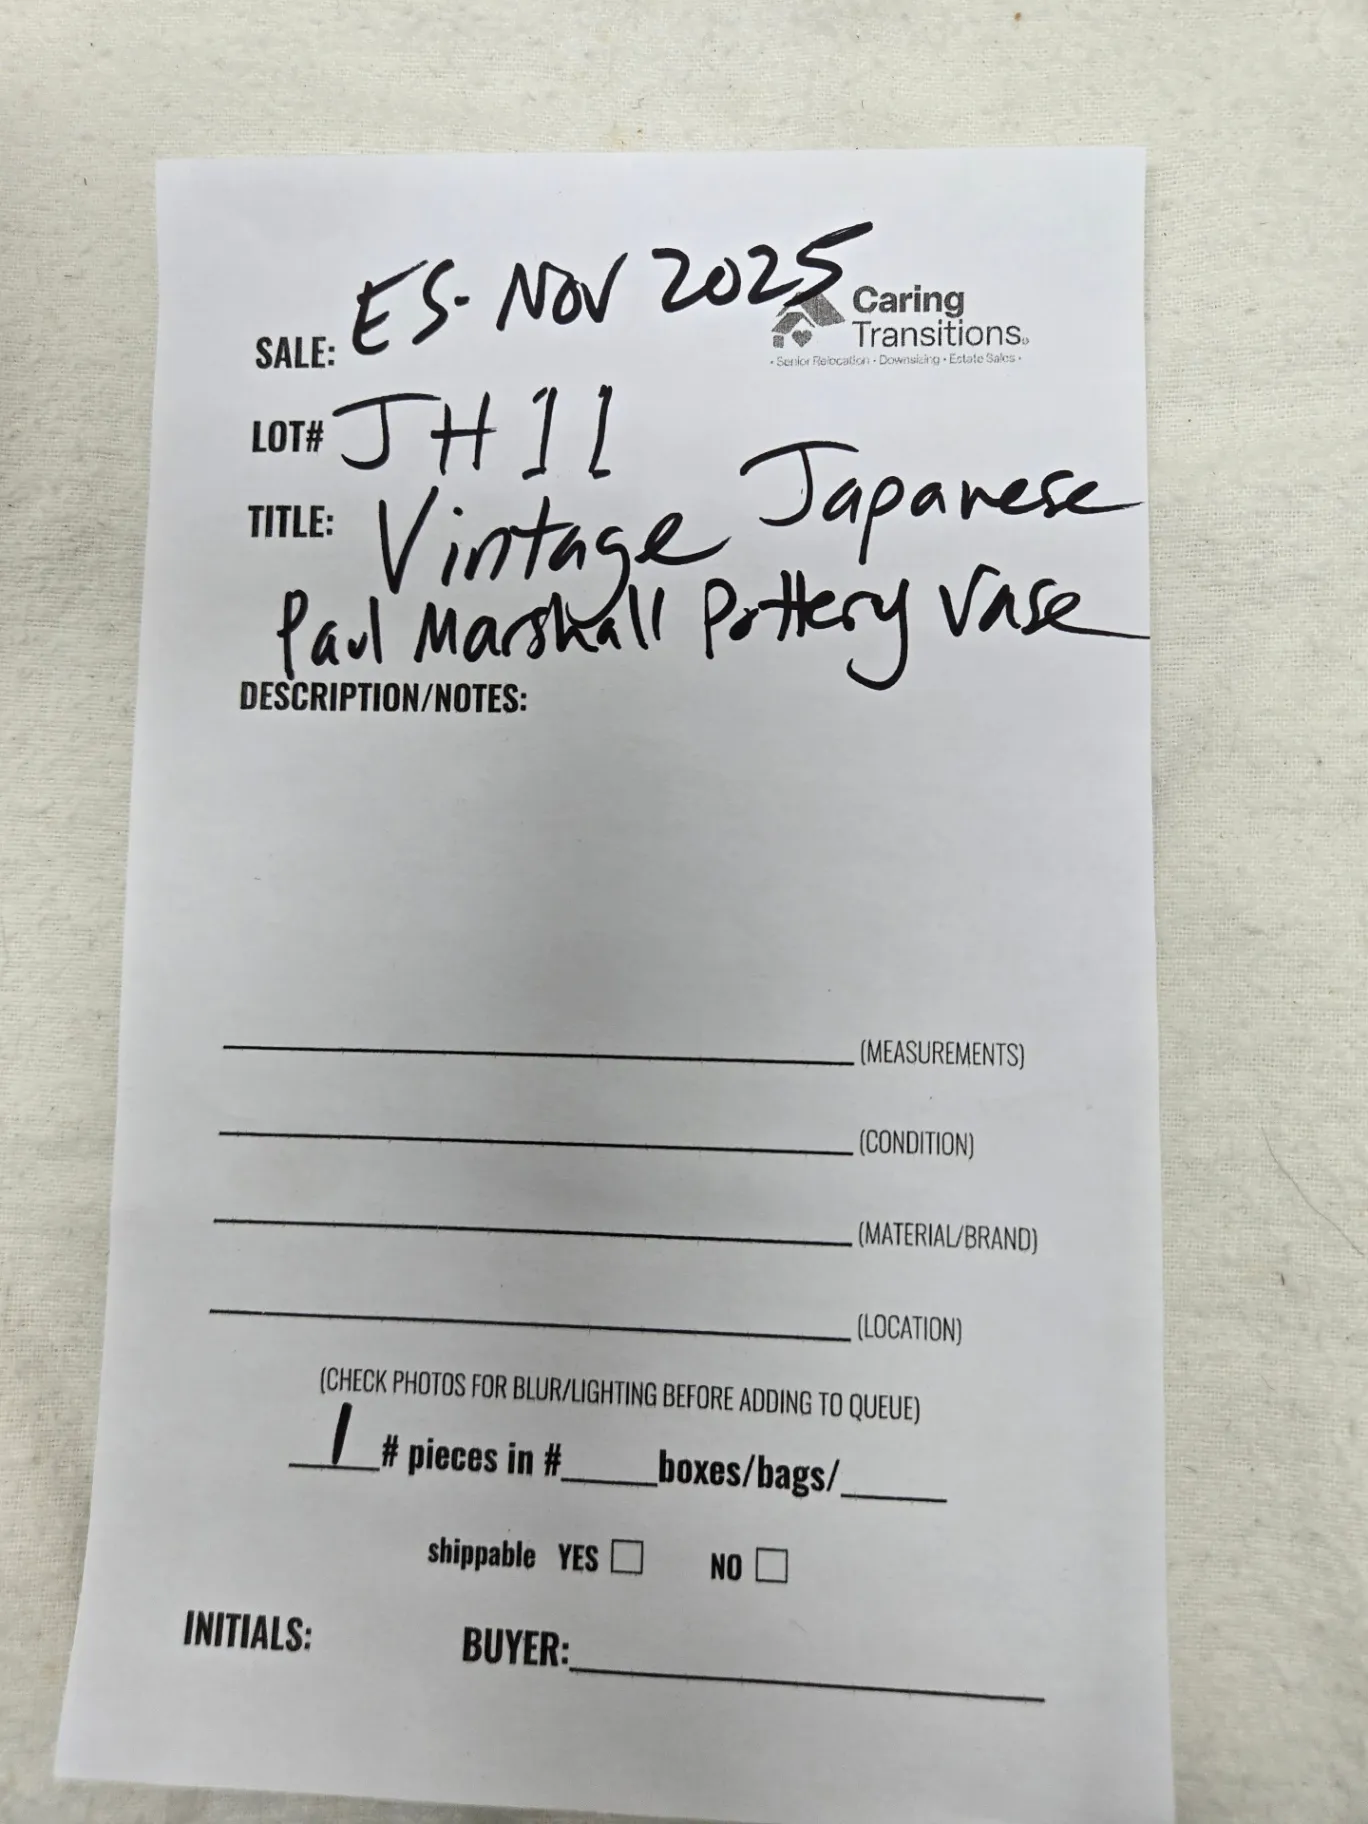 SALE: ES. Nov 2025
Caring
Transitions®
• Senior Relocation • Downsizing • Estate Sales •
LOT# JH11
TITLE: Vintage Japanese
Paul Marshall Pottery Vase
DESCRIPTION/NOTES:
(MEASUREMENTS)
(CONDITION)
(MATERIAL/BRAND)
(LOCATION)
(CHECK PHOTOS FOR BLUR/LIGHTING BEFORE ADDING TO QUEUE)
1 # pieces in #_____boxes/bags/_____
shippable YES ☐ NO ☐
INITIALS: BUYER:_____